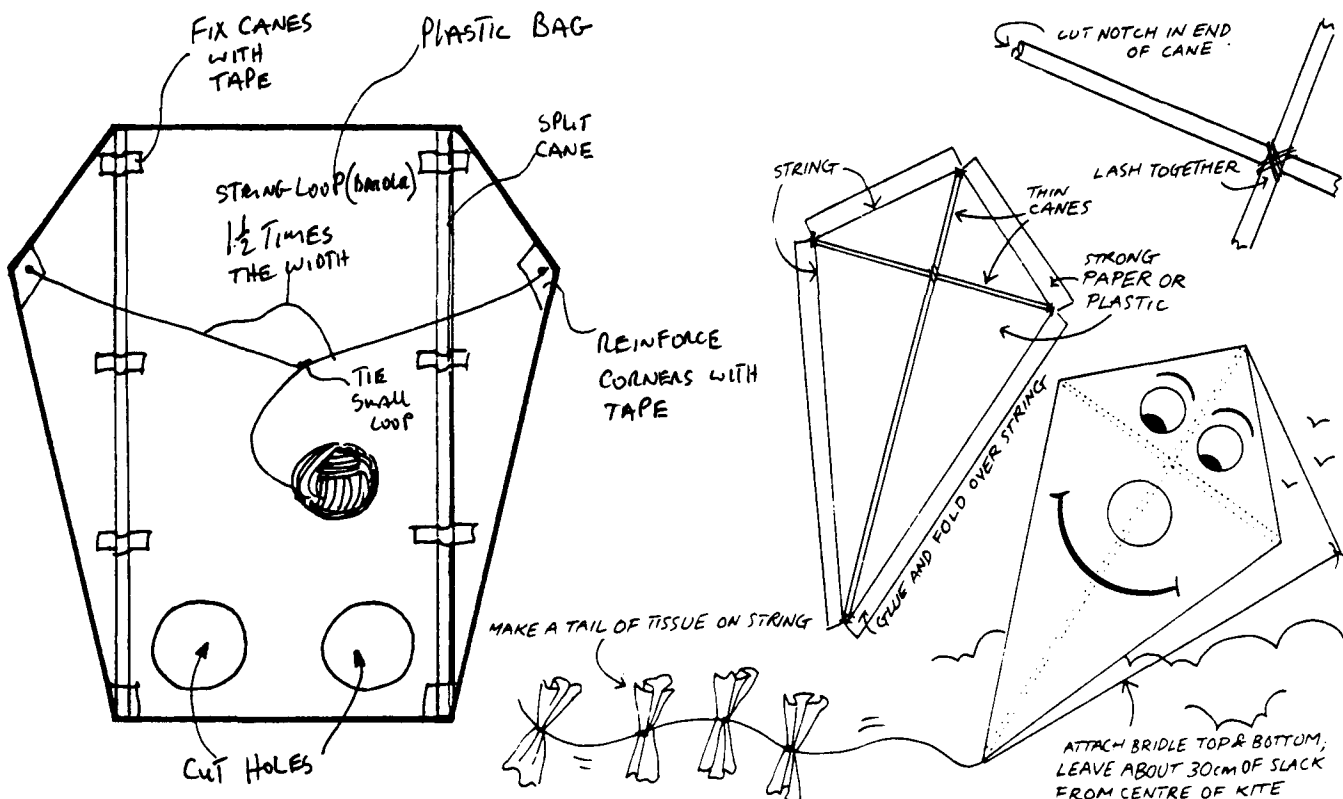 FIX CANES
WITH
TAPE
PLASTIC BAG
SPLIT
CANE
STRING LOOP (BRIDLE)
1½ TIMES
THE WIDTH
REINFORCE
CORNERS WITH
TAPE
TIE
SMALL
LOOP
CUT HOLES
CUT NOTCH IN END
OF CANE
LASH TOGETHER
STRING
THIN
CANES
STRONG
PAPER OR
PLASTIC
GLUE AND FOLD OVER STRING
MAKE A TAIL OF TISSUE ON STRING
ATTACH BRIDLE TOP & BOTTOM,
LEAVE ABOUT 30cm OF SLACK
FROM CENTRE OF KITE